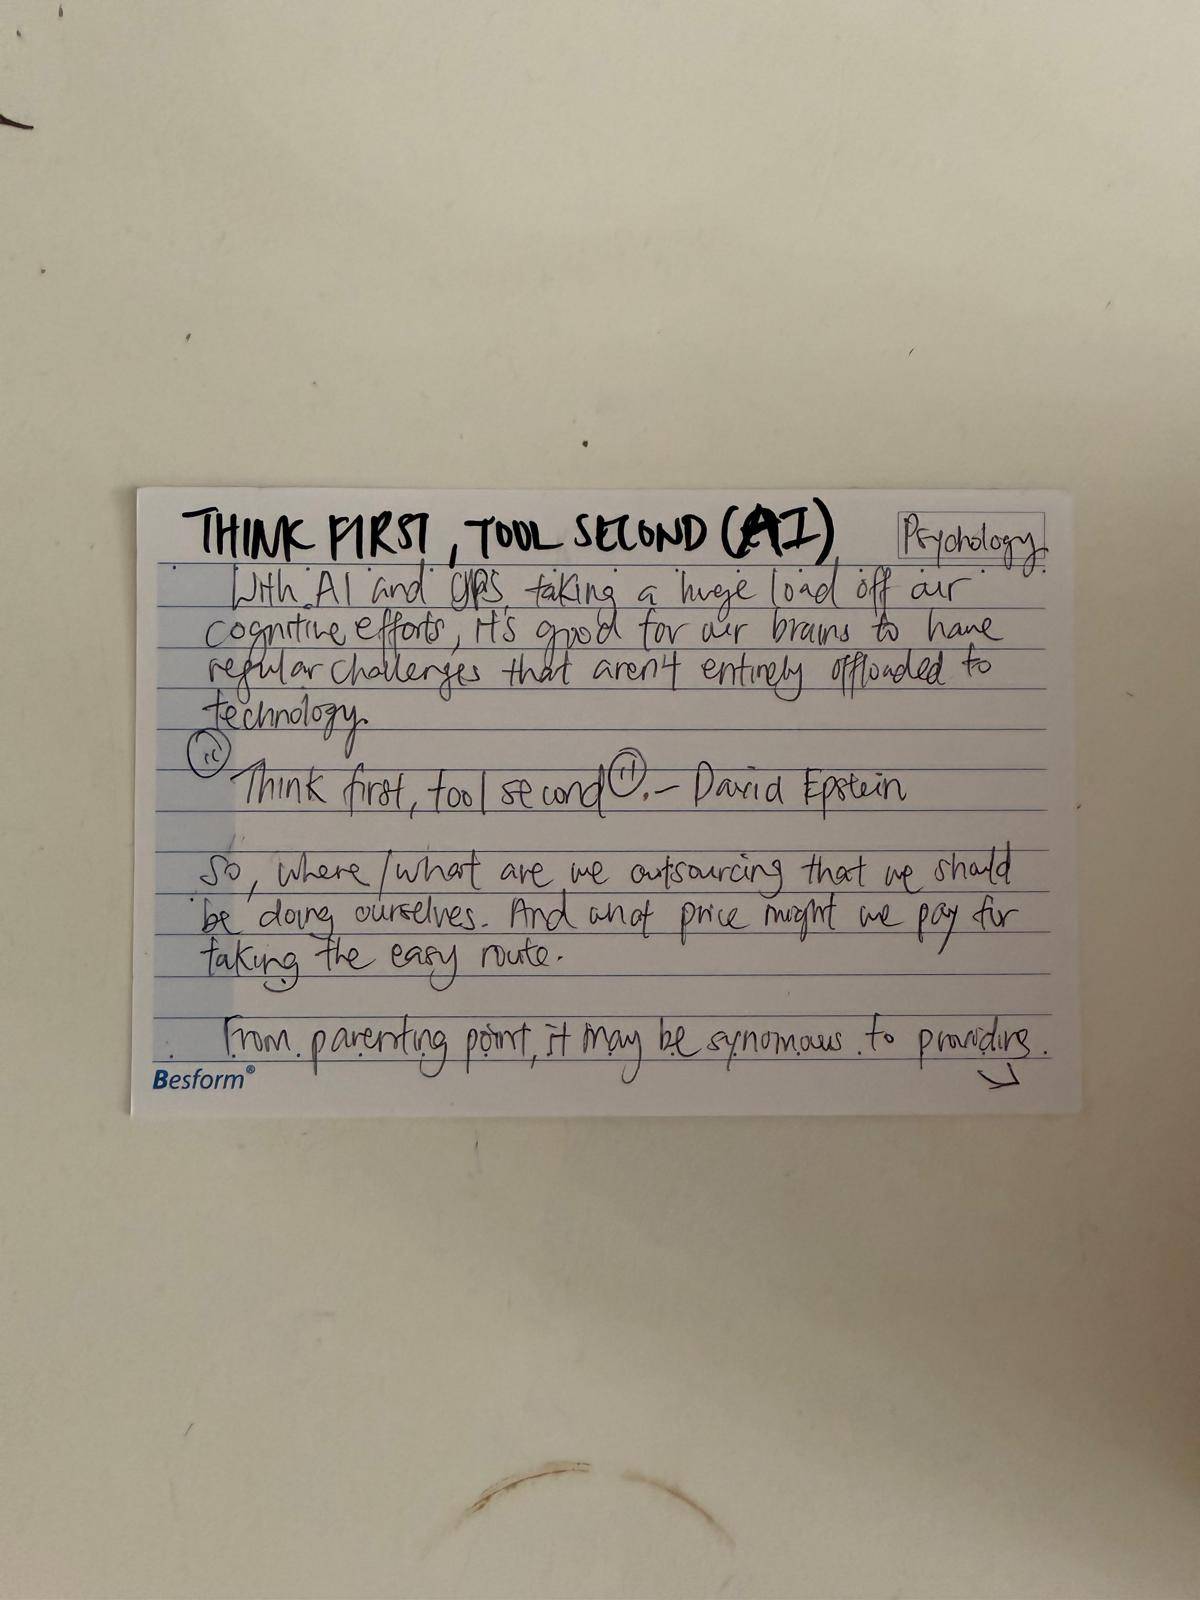 THINK FIRST, TOOL SECOND (AI)
Psychology
With AI and GPS taking a huge load off our
cognitive efforts, it's good for our brains to have
regular challenges that aren't entirely offloaded to
technology.
"Think first, tool second". - David Epstein
So, where/what are we outsourcing that we should
be doing ourselves. And what price might we pay for
taking the easy route.
From parenting point, it may be synomous to providing
Besform®